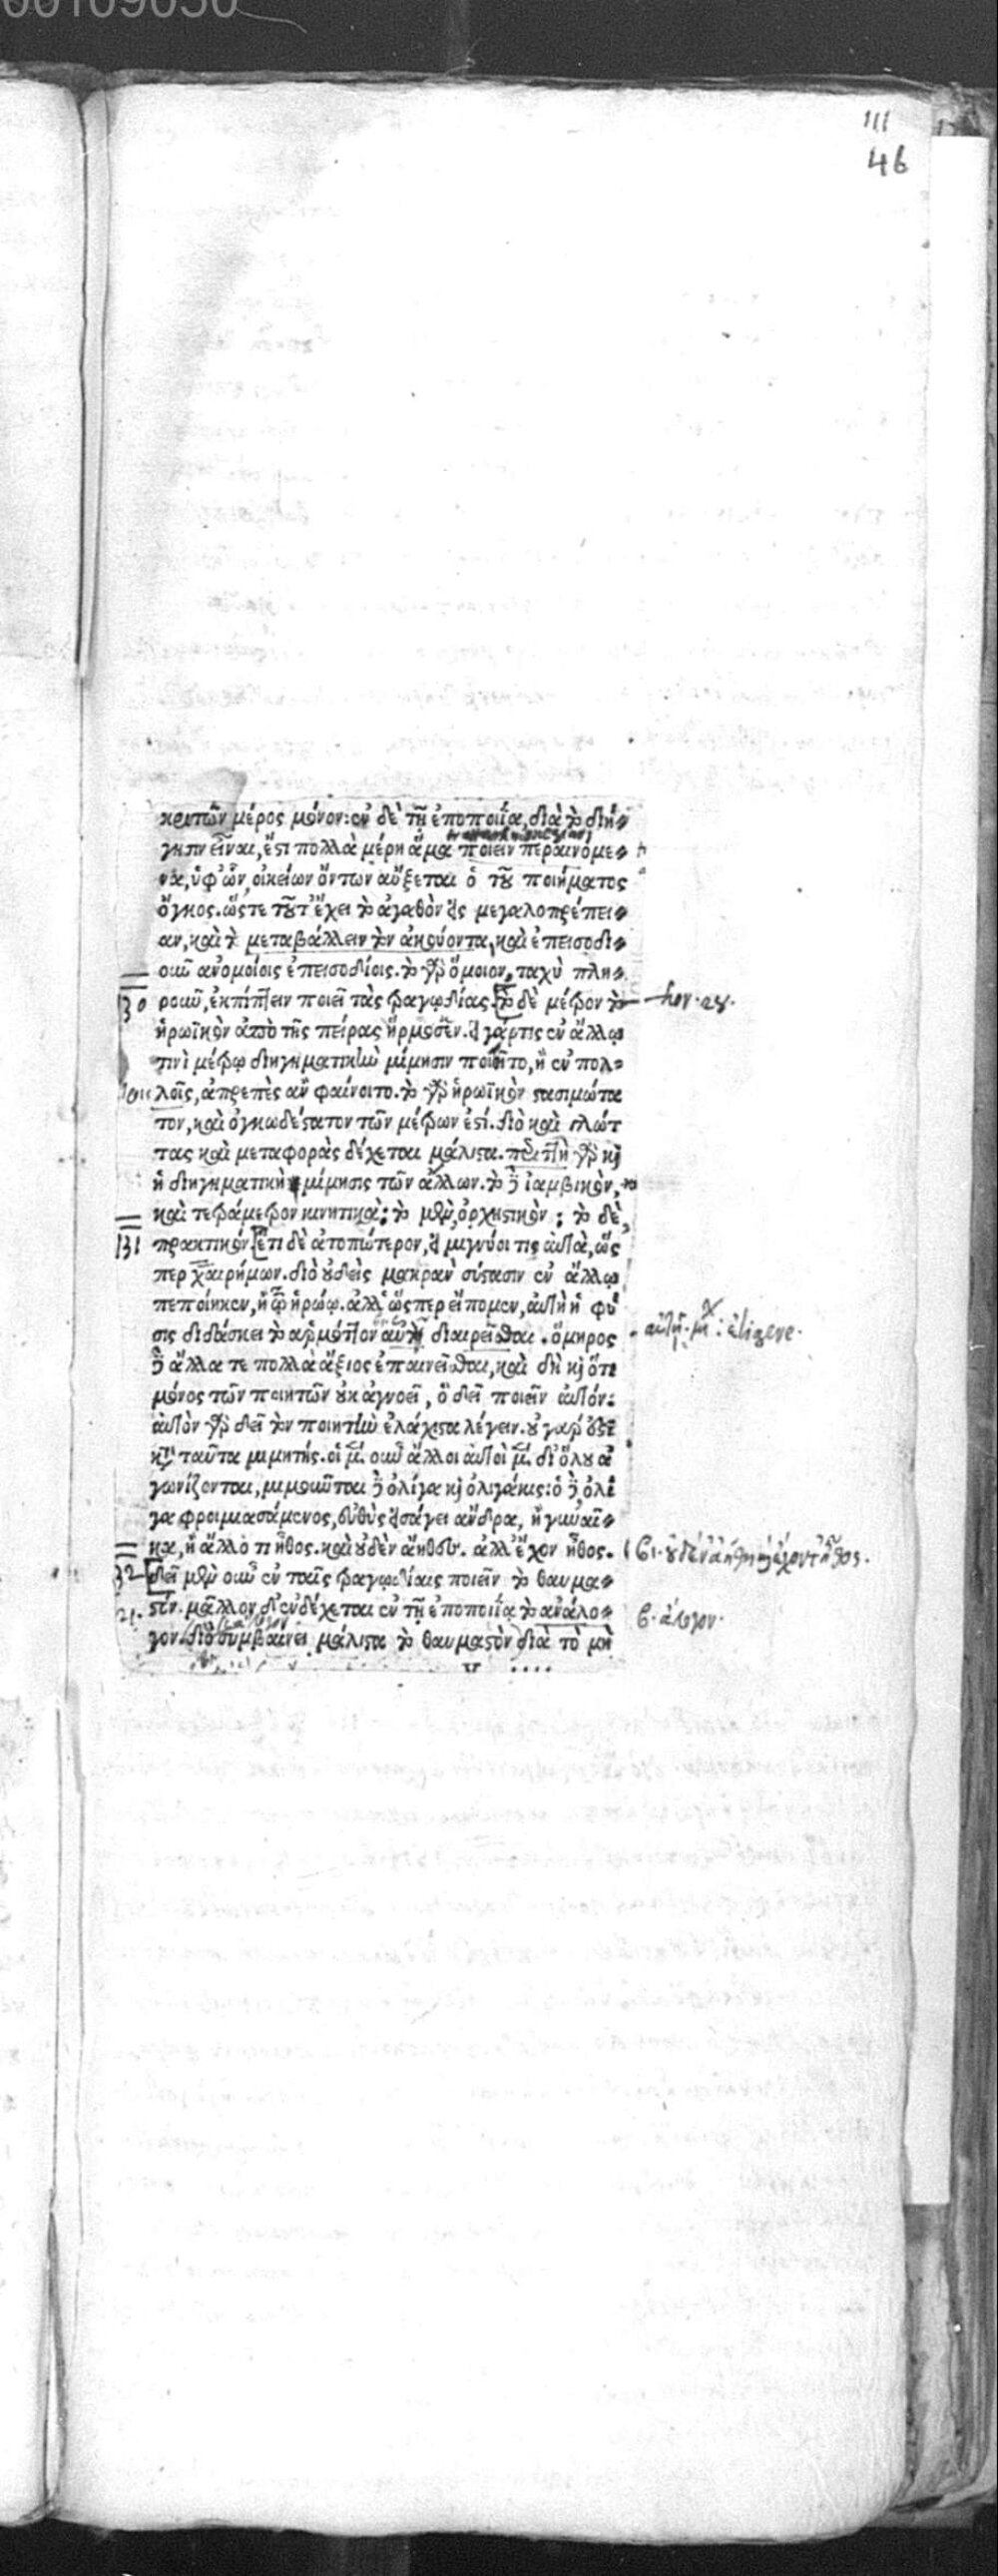 111
46
κριτῶν μέρος μόνον: ἐν δὲ τῇ ἐποποιΐᾳ, διὰ τὸ διή-
γησιν εἶναι, ἔστι πολλὰ μέρη ἅμα ποιεῖν περαινόμε-
να, ὑφ' ὧν, οἰκείων ὄντων αὔξεται ὁ τοῦ ποιήματος
ὄγκος. ὥστε τοῦτ' ἔχει τὸ ἀγαθὸν εἰς μεγαλοπρέπει-
αν, καὶ τὸ μεταβάλλειν τὸν ἀκούοντα, καὶ ἐπεισοδι-
οῦν ἀνομοίοις ἐπεισοδίοις. τὸ γὰρ ὅμοιον, ταχὺ πλη-
130 ροῦν, ἐκπίπτειν ποιεῖ τὰς τραγῳδίας. τὸ δὲ μέτρον τὸ
ἡρωϊκὸν ἀπὸ τῆς πείρας ἥρμοσεν. εἰ γάρ τις ἐν ἄλλῳ
τινὶ μέτρῳ διηγηματικὴν μίμησιν ποιοῖτο, ἢ ἐν πολ-
λοῖς, ἀπρεπὲς ἂν φαίνοιτο. τὸ γὰρ ἡρωϊκὸν στασιμώτα
τον, καὶ ὀγκωδέστατον τῶν μέτρων ἐστί. διὸ καὶ γλώτ
τας καὶ μεταφορὰς δέχεται μάλιστα. περιττὴ γὰρ καὶ
ἡ διηγηματικὴ μίμησις τῶν ἄλλων. τὸ δὲ ἰαμβικὸν,
καὶ τετράμετρον κινητικά: τὸ μὲν, ὀρχηστικὸν: τὸ δὲ,
131 πρακτικόν. ἔτι δὲ ἀτοπώτερον, εἰ μιγνύοι τις αὐτὰ, ὥς
περ χαιρήμων. διὸ οὐδεὶς μακρὰν σύστασιν ἐν ἄλλῳ
πεποίηκεν, ἢ τῷ ἡρώῳ. ἀλλ' ὥσπερ εἴπομεν, αὐτὴ ἡ φύ
σις διδάσκει τὸ ἁρμόττον αὐτῇ διαιρεῖσθαι. ὅμηρος
δὲ ἄλλα τε πολλὰ ἄξιος ἐπαινεῖσθαι, καὶ δὴ καὶ ὅτι
μόνος τῶν ποιητῶν οὐκ ἀγνοεῖ, ὃ δεῖ ποιεῖν αὐτόν:
αὐτὸν γὰρ δεῖ τὸν ποιητὴν ἐλάχιστα λέγειν. οὐ γάρ ἐστι
κατὰ ταῦτα μιμητής. οἱ μὲν οὖν ἄλλοι αὐτοὶ μὲν δι' ὅλου ἀ
γωνίζονται, μιμοῦνται δὲ ὀλίγα καὶ ὀλιγάκις: ὁ δὲ ὀλί
γα φροιμιασάμενος, εὐθὺς εἰσάγει ἄνδρα, ἢ γυναῖ-
κα, ἢ ἄλλό τι ἦθος. καὶ οὐδὲν ἀήθη. ἀλλ' ἔχον ἦθος.
32 δεῖ μὲν οὖν ἐν ταῖς τραγῳδίαις ποιεῖν τὸ θαυμα-
στόν. μᾶλλον δ' ἐνδέχεται ἐν τῇ ἐποποιΐᾳ τὸ ἀνάλο-
γον. διὸ συμβαίνει μάλιστα τὸ θαυμαστὸν διὰ τὸ μὴ
ἄλογον.